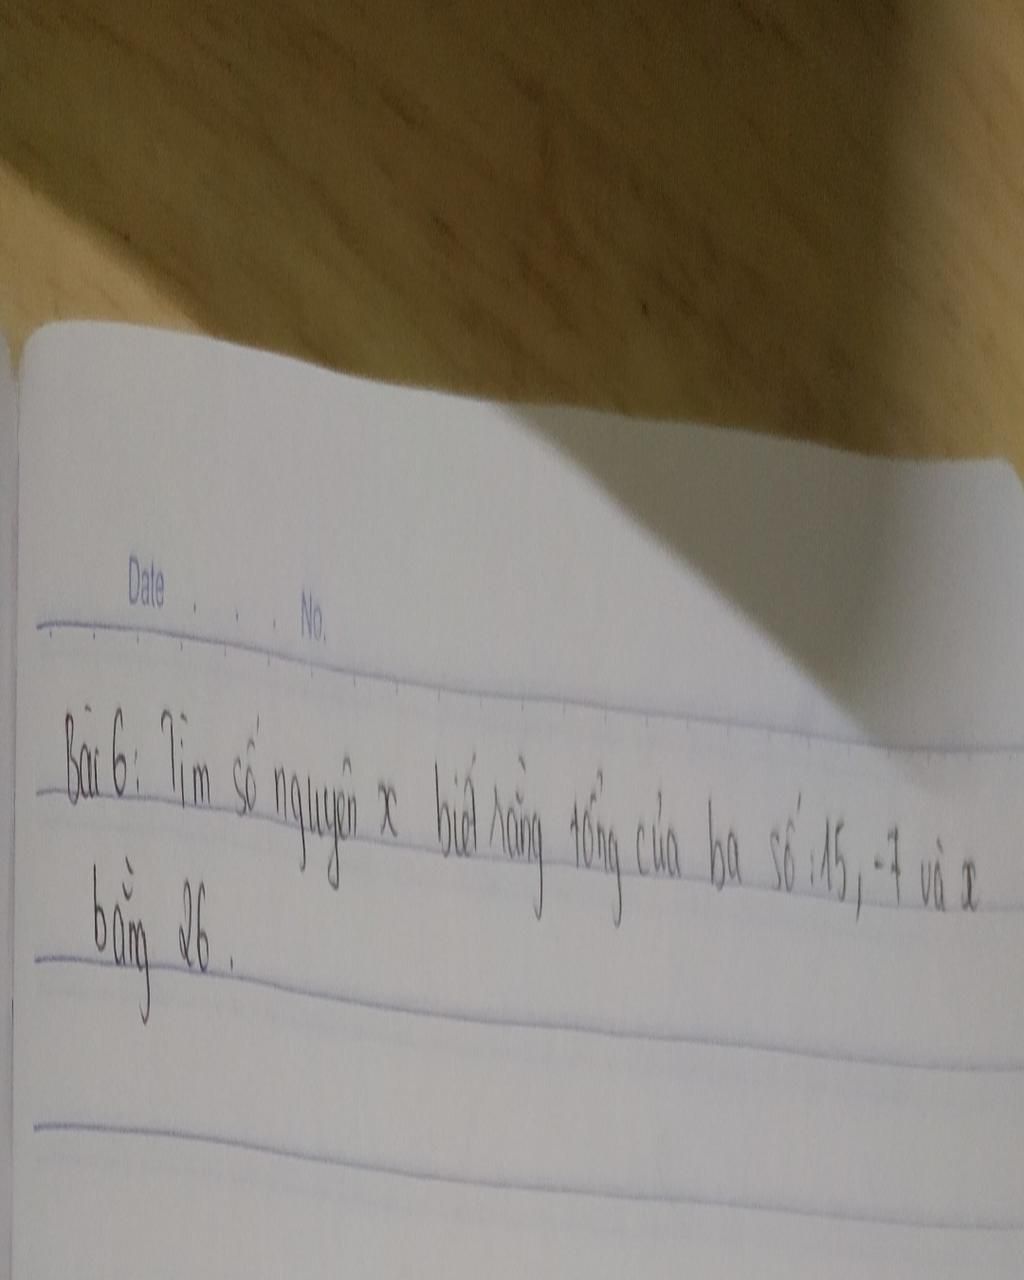 Date . . . No.
Bài 6: Tìm số nguyên x biết rằng tổng của ba số :15, -7 và x
bằng 26.